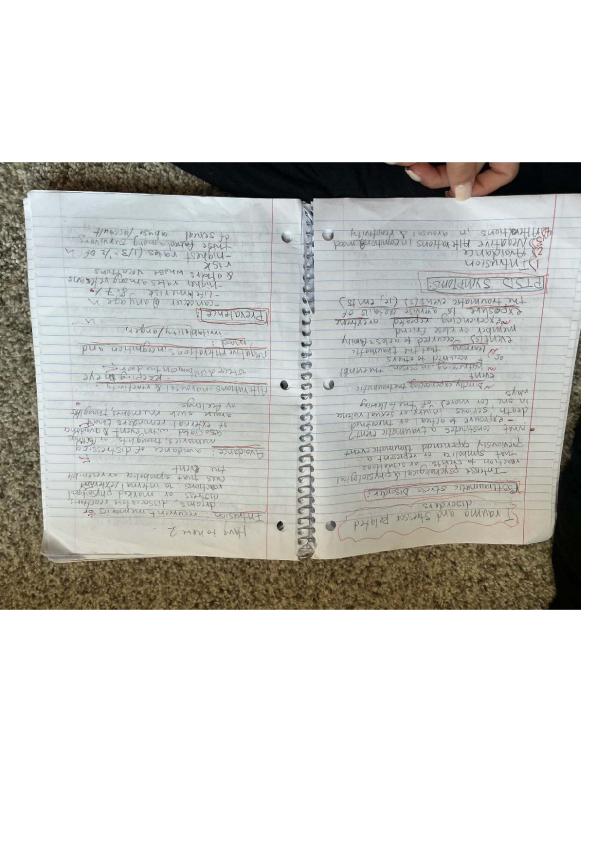 Trauma and stressor Related
disorders
Posttraumatic stress Disorder:
-Intense psychological & physiological
reaction to events or situations
that symbolize or represent a
previously experienced traumatic event
what constitutes a traumatic event?
- exposure to actual or threatened
death, serious injury, or sexual violence
in one (or more) of the following
ways
directly experiencing the traumatic
event
witnessing, in person, the event
as occurred to others
learning that the traumatic
event(s) occurred to a close family
member or close friend
experiencing repeated extreme
exposure to aversive details of
the traumatic event(s) (ie, EMTS)
PTSD SYMPTOMS:
1) Intrusion
2) Avoidance
3) Negative Alterations in cognition & mood
4) Alterations in arousal & reactivity
Have to have 2
Intrusion: recurrent
dreams, dissociative reactions
distress or marked physiological
reactions to internal/external
cues that symbolize or resemble
the event
Avoidance: avoidance of distressing
memories, thoughts, or feelings
of external reminders that
arouse such memories thoughts
or feelings
Alterations in arousal & reactivity:
Negative Alterations in cognition and
mood:
irritability/anger
Prevalence:
-can occur at any age
-Lifetime risk is 8.7%
-higher rates among veterans
& others whose vocations
risk
-highest rates (1/3-1/2 of
those found among survivors
of sexual abuse/assault